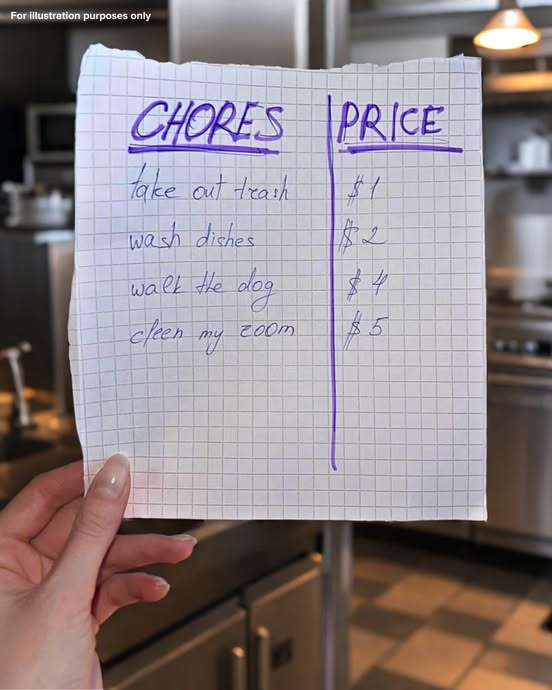 For illustration purposes only
CHORES PRICE
take out trash $1
wash dishes $2
walk the dog $4
cleen my room $5